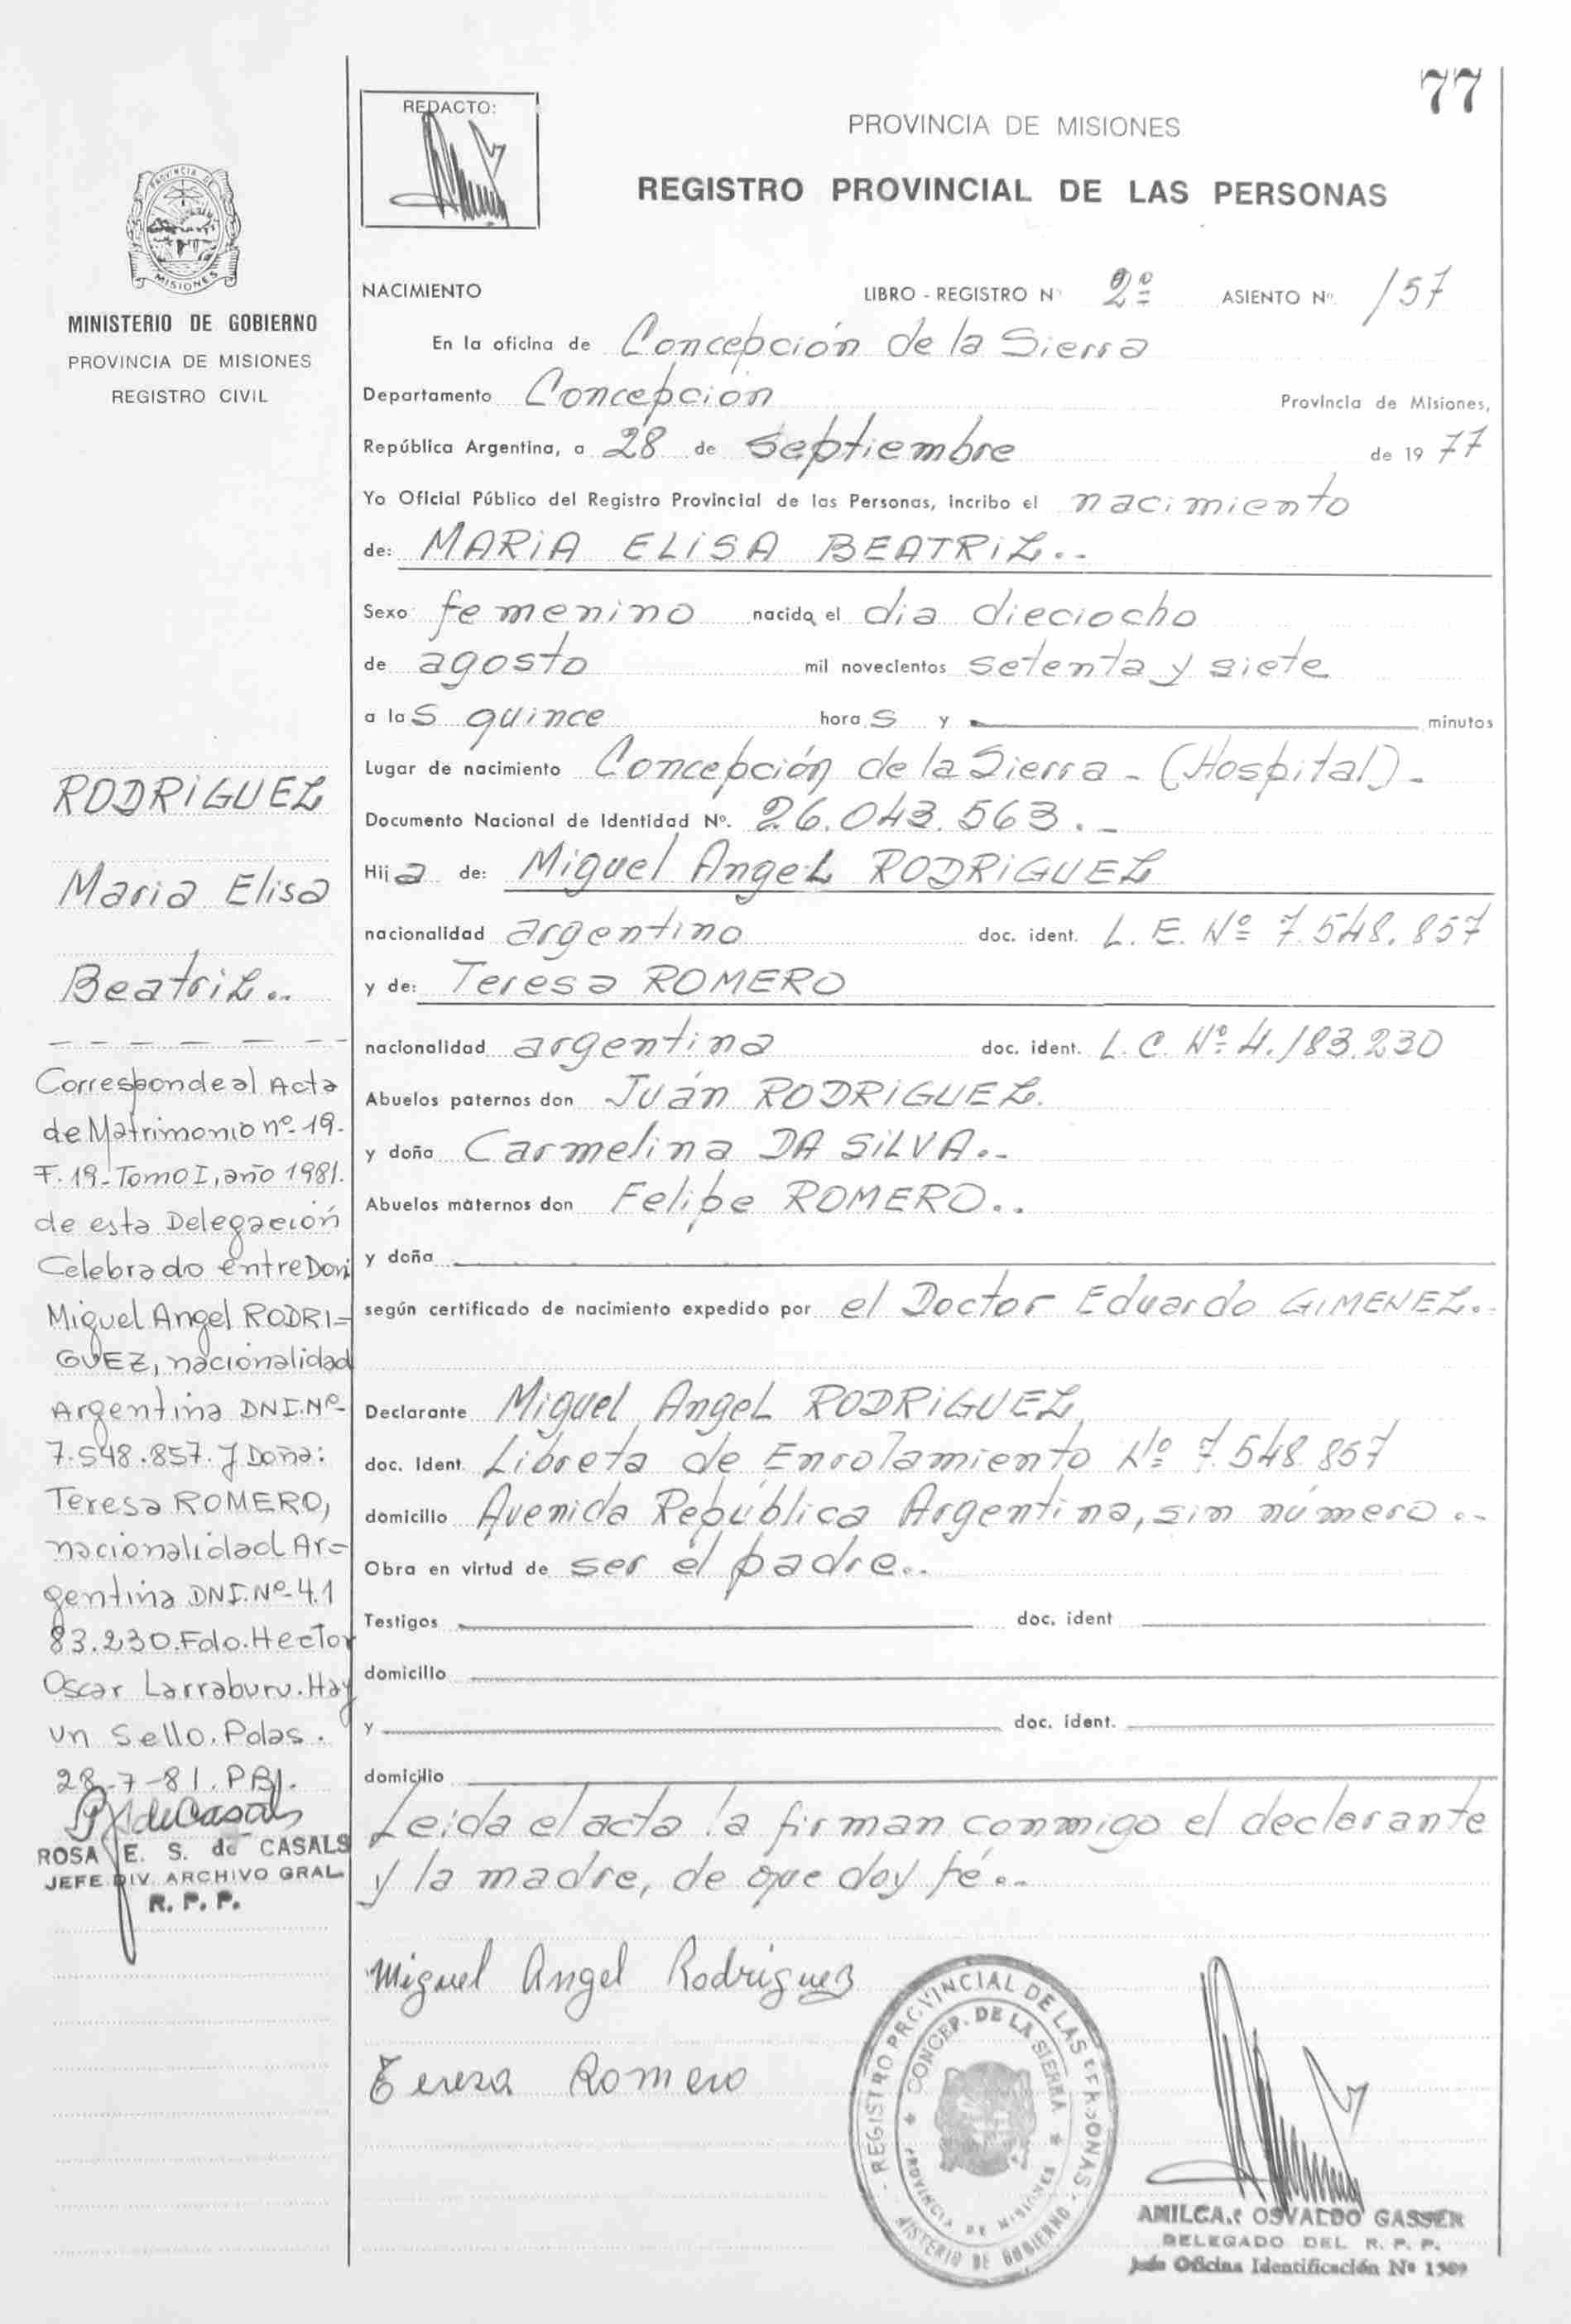 77
REDACTO:
PROVINCIA DE MISIONES
REGISTRO PROVINCIAL DE LAS PERSONAS
PROVINCIA DE
MISIONES
MINISTERIO DE GOBIERNO
PROVINCIA DE MISIONES
REGISTRO CIVIL
NACIMIENTO LIBRO - REGISTRO Nº 2º ASIENTO Nº 157
En la oficina de Concepción de la Sierra
Departamento Concepción Provincia de Misiones,
República Argentina, a 28 de septiembre de 1977
Yo Oficial Público del Registro Provincial de las Personas, incribo el nacimiento
de: MARIA ELISA BEATRIZ..-
Sexo femenino nacida el dia dieciocho
de agosto mil novecientos setenta y siete
a las quince horas y minutos
Lugar de nacimiento Concepción de la Sierra - (Hospital)-
Documento Nacional de Identidad Nº. 26.043.563.-
Hija de: Miguel Angel RODRIGUEZ
nacionalidad argentino doc. ident. L. E. Nº 7.548.857
y de: Teresa ROMERO
nacionalidad argentina doc. ident. L. C. Nº 4.183.230
Abuelos paternos don Juán RODRIGUEZ.
y doña Carmelina DA SILVA..-
Abuelos maternos don Felipe ROMERO..
y doña
según certificado de nacimiento expedido por el Doctor Eduardo GIMENEZ..
Declarante Miguel Angel RODRIGUEZ
doc. Ident. Libreta de Enrolamiento Nº 7.548.857
domicilio Avenida República Argentina, sin número..-
Obra en virtud de ser el padre..
Testigos doc. ident
domicilio
y doc. ident.
domicilio
Leida el acta la firman conmigo el declarante
y la madre, de que doy fé..
Miguel Angel Rodriguez
Teresa Romero
RODRIGUEZ
Maria Elisa
Beatriz..
Corresponde al Acta
de Matrimonio nº-19-
F. 19-Tomo I, año 1981.
de esta Delegación
Celebrado entre Don
Miguel Angel RODRI=
GUEZ, nacionalidad
Argentina DNI.Nº-
7.548.857. y Doña:
Teresa ROMERO,
nacionalidad Ar=
gentina DNI.Nº-4.1
83.230.Fdo.Hector
Oscar Larraburu.Hay
un Sello. Pdas.
28-7-81. PBJ.
ROSA E. S. de CASALS
JEFE DIV. ARCHIVO GRAL.
R. P. P.
REGISTRO PROVINCIAL DE LAS PERSONAS
CONCEP. DE LA SIERRA
PROVINCIA DE MISIONES
MINISTERIO DE GOBIERNO
AMILCAR OSVALDO GASSER
DELEGADO DEL R. P. P.
Jefe Oficina Identificación Nº 1509